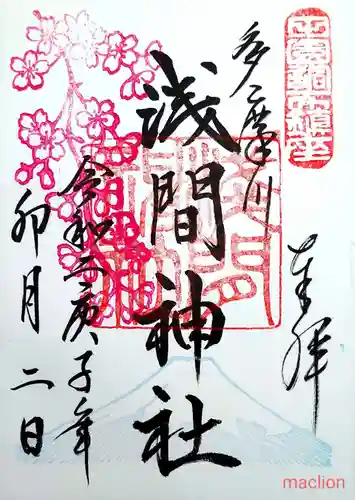 多摩川
奉拝
浅間神社
令和二庚子年
卯月二日
maclion